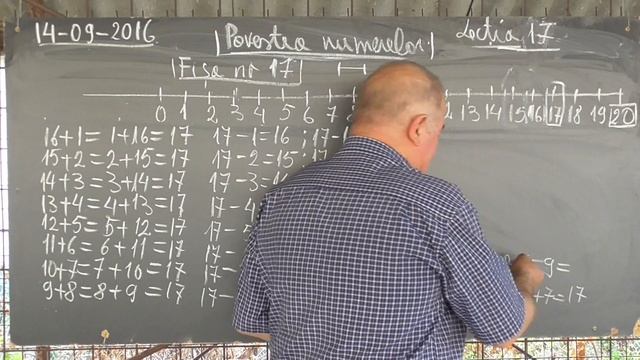 14-09-2016 Povestea numerelor Lectia 17
Fisa nr 17
0 1 2 3 4 5 6 7 2 13 14 15 16 17 18 19 20
16+1=1+16=17 17-1=16; 17-
15+2=2+15=17 17-2=15; 17
14+3=3+14=17 17-3=
13+4=4+13=17 17-4
12+5=5+12=17 17-
11+6=6+11=17 17-
10+7=7+10=17 17- -9=
9+8=8+9=17 17- +7=17